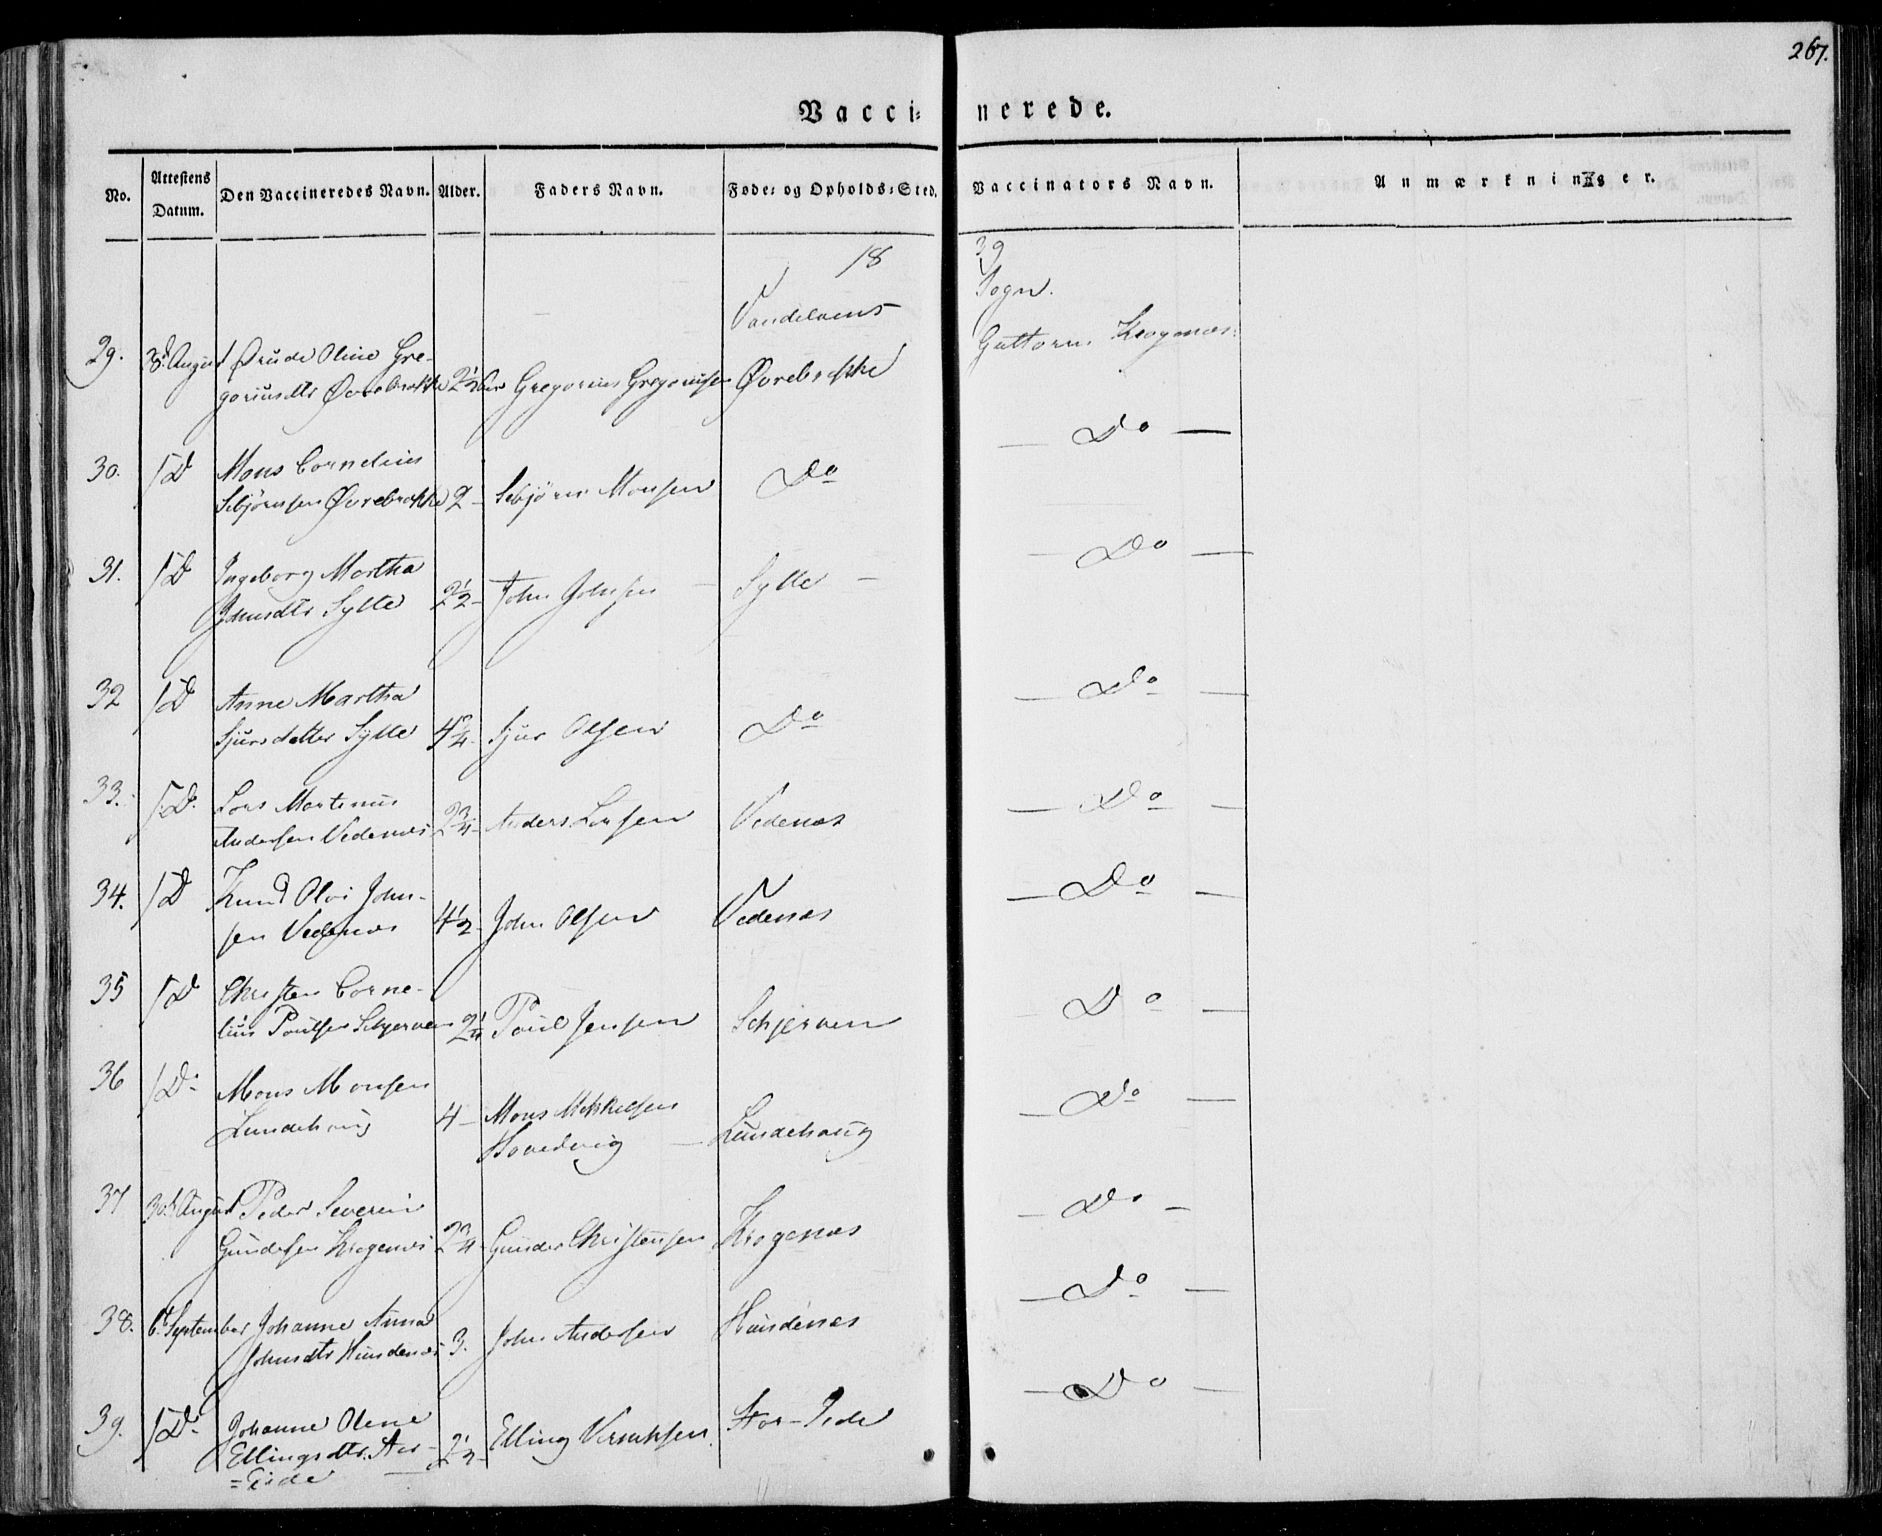 267.
Vaccinerede.
No. Attestens Datum. Den Vaccineredes Navn. Alder. Faders Navn. Føde- og Opholds-Sted. Vaccinators Navn. Anmærkninger.
18 39
Vandelvens Sogn.
29. August Drude Oline Gre- Guttorm Krogenæs
goriusdtr Øvrebrække 2 1/2 Gregorius Gregoriusen Øvrebrække
30. D Mons Cornelius Do
Sebjørnsen Øvrebrække 2 - Sebjørn Monsen Do
31. D Ingeborg Martha Do
Johnsdtr Sylte 2 1/2 - John Johnsen - Sylte -
32 D Anne Martha Do
Sjursdatter Sylte Sjur Olsen Do
33. D. Lars Martinus Do
Andersen Vedenæs 2 3/4 - Anders Larsen Vedenæs
34. D Knud Olai John- Do
sen Vedenæs 4 1/2 - John Olsen Vedenæs
35 D Christen Corne- Do
lius Poulsen Schjerven 2 1/4 Poul Jensen Schjerven
36 D. Mons Monsen Do
Lundehoug 4 - Mons Mikkelsen
Hovedvig - Lundehoug
37 30 August Peder Severin Do
Gundersen Krogenæs 2 3/4 - Gunder Christensen Krogenæs
38. 6 September Johanne Anna Do
Johnsdtr Hundenæs 3. John Andersen Hundenæs
39. D. Johanne Olene Do
Ellingsdtr. Stor- 2 1/2 - Elling Stor-Eide
=Eide